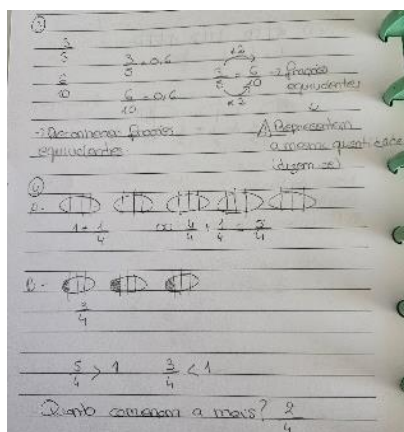 3
3/5 3/5 = 0,6 3/5 = 6/10 → frações equivalentes
×2
×2
6/10 6/10 = 0,6
→ Reconhecer frações equivalentes
⚠ Representam a mesma quantidade (dizem-se)
A.
1 + 1/4 ou 4/4 + 1/4 = 5/4
B.
3/4
5/4 > 1 3/4 < 1
Quanto comeram a mais? 2/4